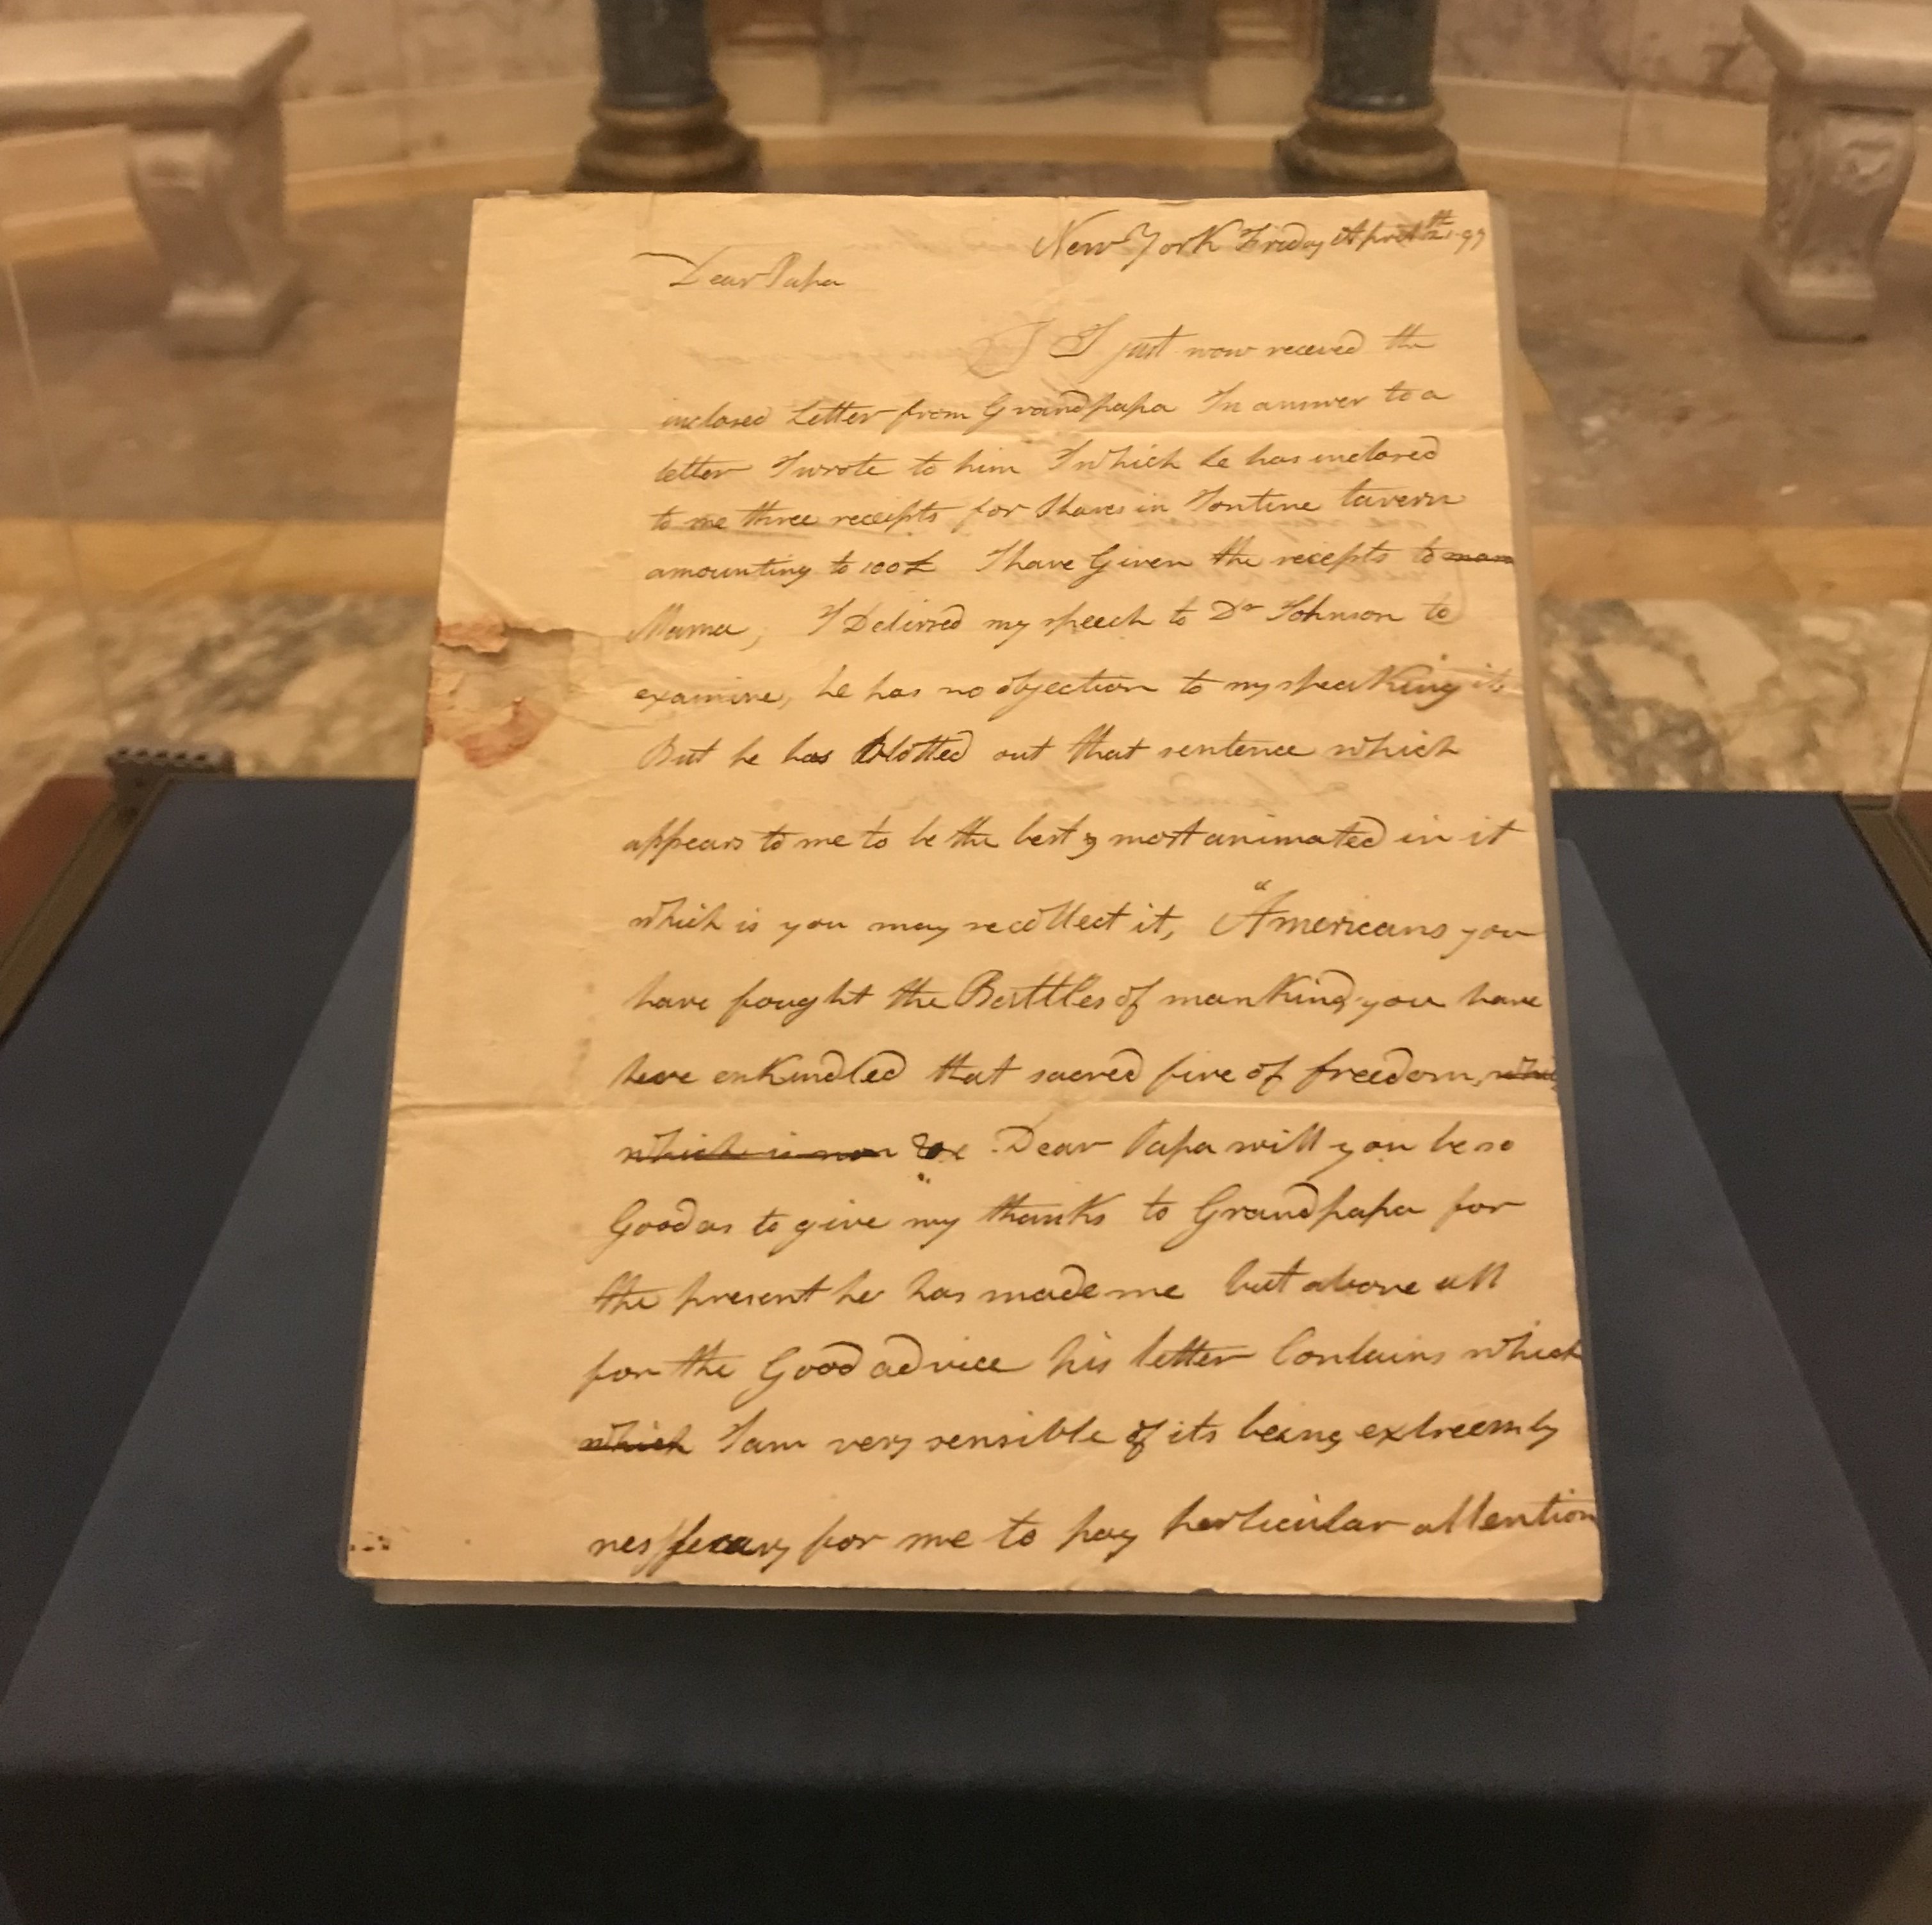 New York Friday April 97
Dear Papa
I just now receved the
inclosed Letter from Grandpapa In answer to a
letter I wrote to him In which he has inclosed
to me three receipts for Shares in Tontine tavern
amounting to 100£ I have Given the recepts to mam
Mama, I Delivred my speech to Dr Johnson to
examine, he has no objection to my speaKing it
But he has Blotted out that sentence which
appears to me to be the best & most animated in it
which is you may recollect it, "Americans you
have fought the Battles of manKind you have
have enKindled that sacred fire of freedom, whi
which is now &c Dear Papa will you be so
Good as to give my thanKs to Grandpapa for
the present he has made me but above all
for the Good advice his letter Contains which
which I am very sensible of its being extreemly
nessecary for me to pay perticular attention